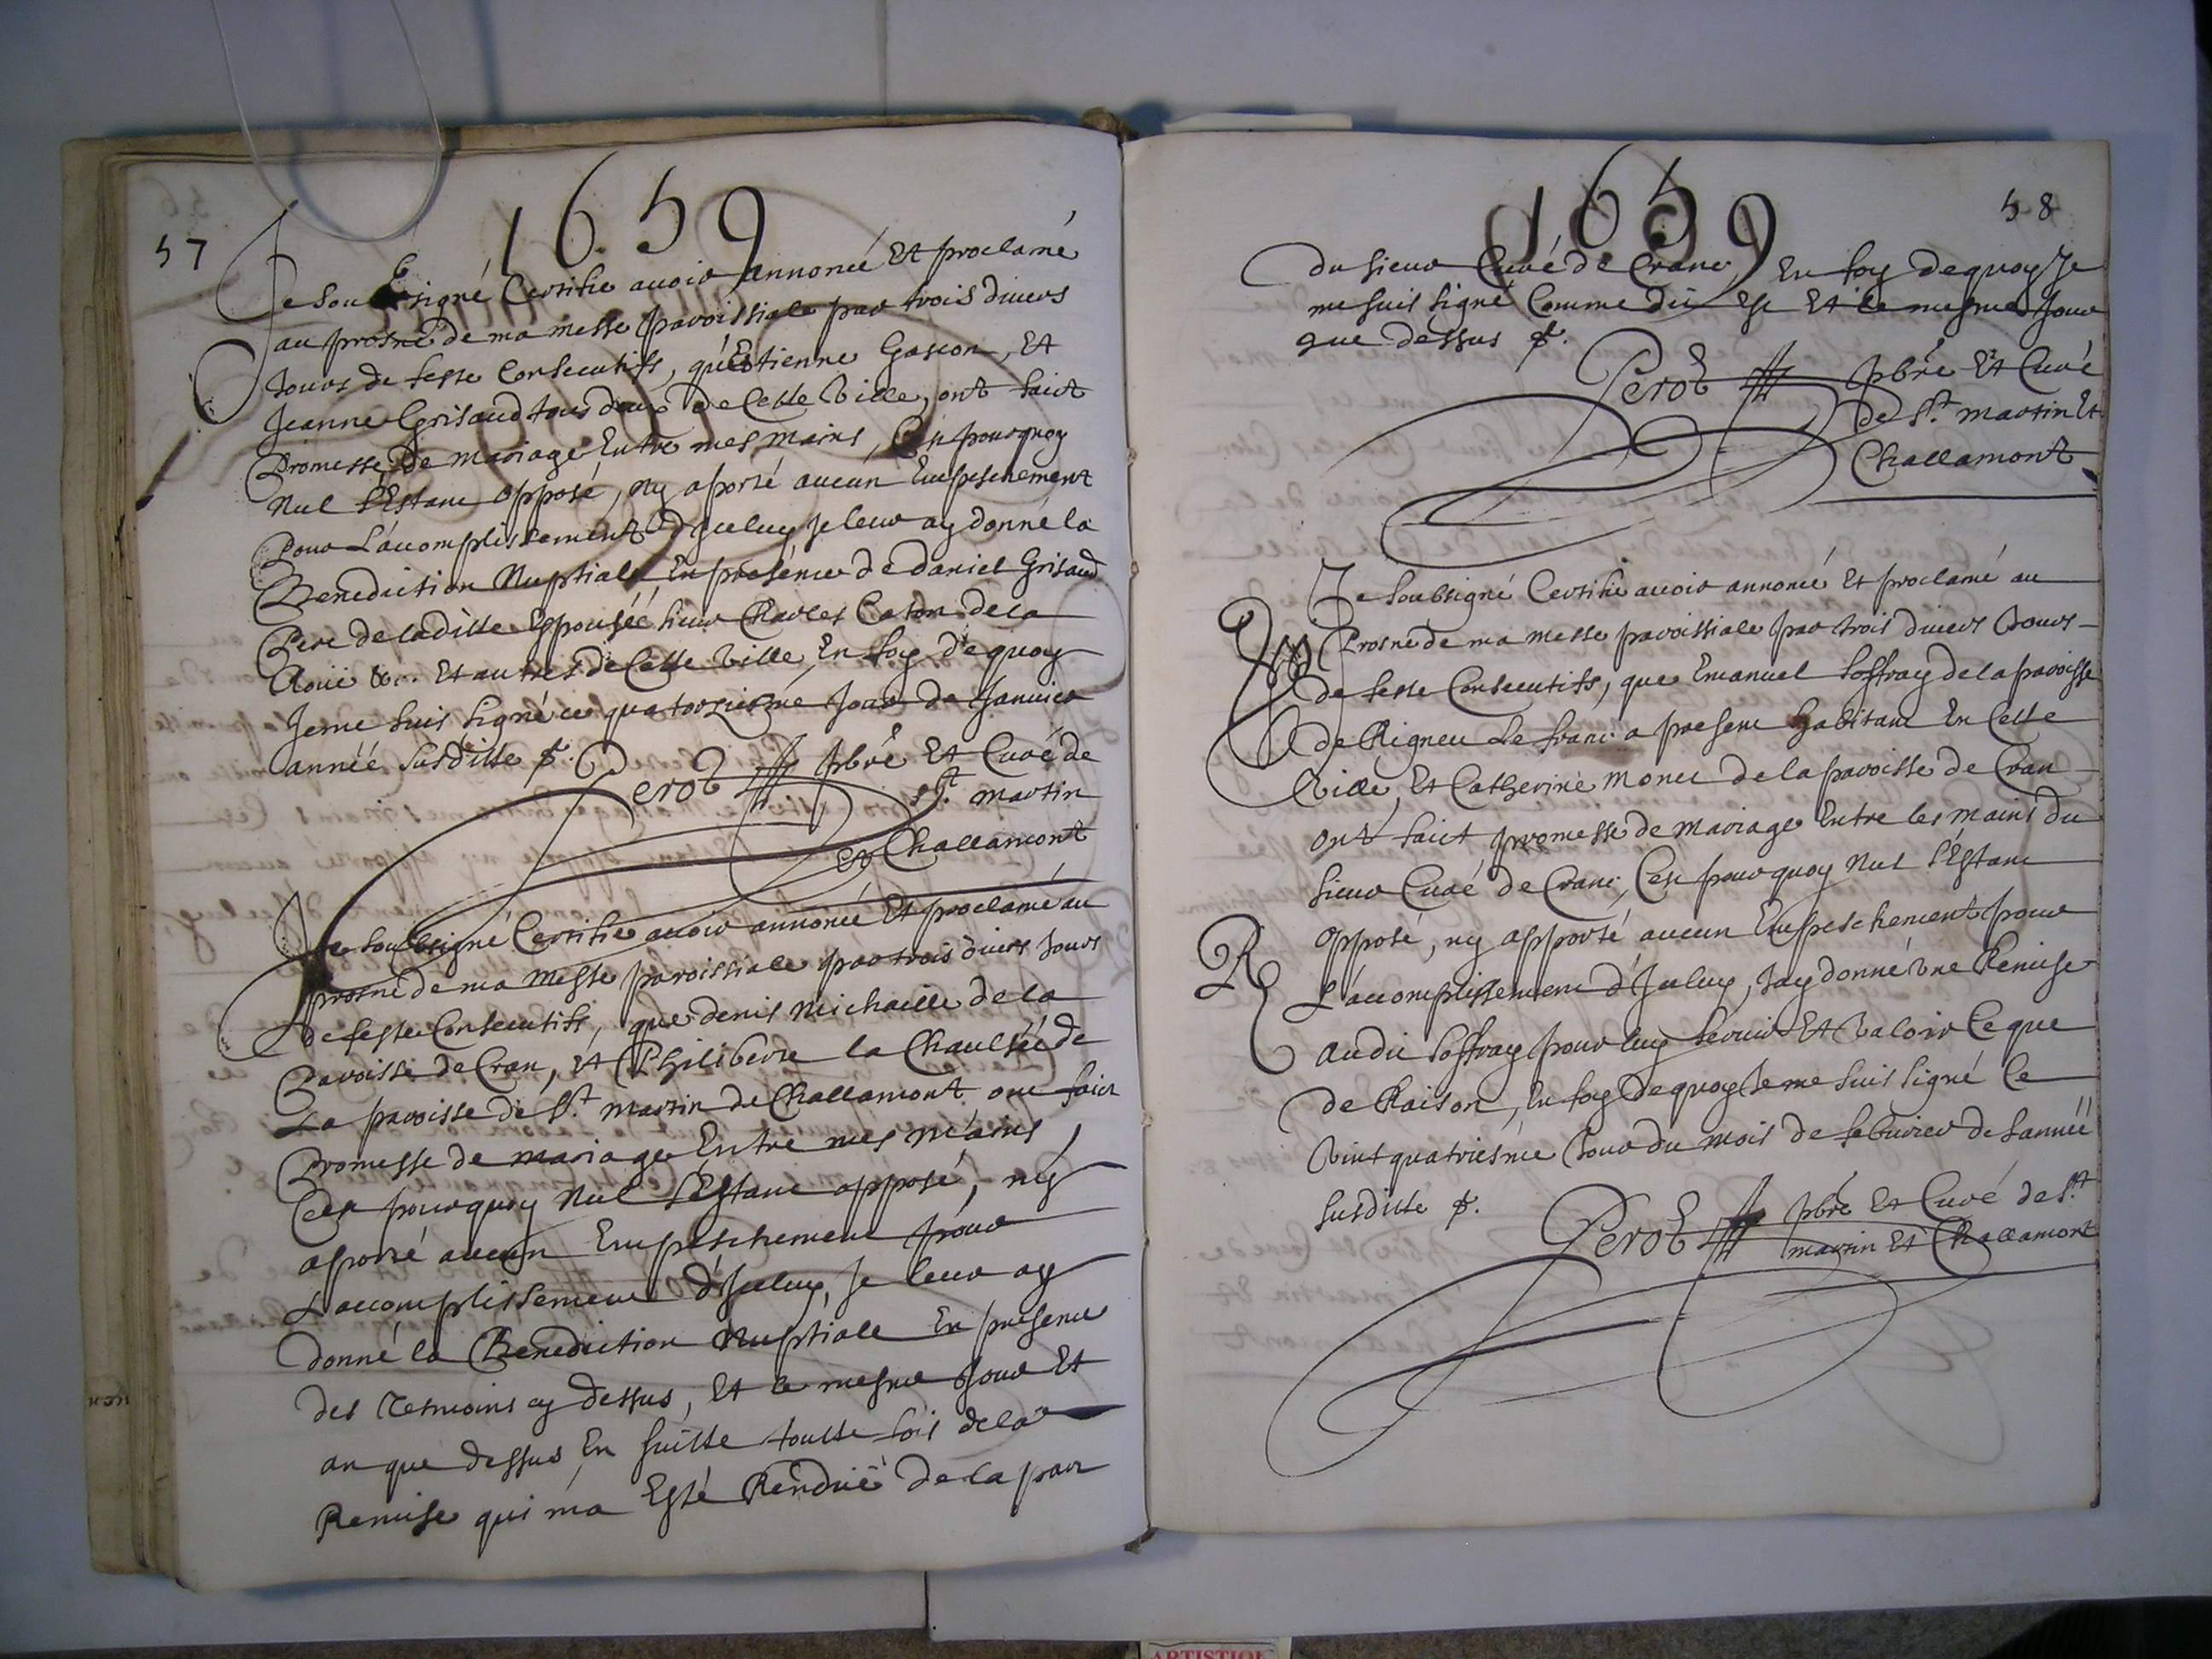 57
1659
Je soubsigné Certifie avoir annoncé Et proclamé
au prosne de ma messe paroissiale par trois divers
Jours de feste Consecutifs, qu'Estienne Gascon, Et
Jeanne Grisaud tous deux de Cette Ville, ont faict
Promesse de Mariage Entre mes mains, C'est pourquoy
Nul s'Estant Opposé, Ny aporté aucun Empeschement
Pour L'acomplissement d'Jceluy Je leur ay donné la
Benediction Nuptiale, En présence de daniel Grisaud
Pere de laditte Espousée sieur Charles Caton dela
&c. Et autres de Cette Ville, En foy de quoy
Jeme suis signé ce quatorziesme Jour de Janvier
année susditte
Perot pbre Et Curé de
St. martin
et Challamont
Je soubsigné Certifie avoir annoncé Et proclamé au
prosne de ma Messe paroissiale par trois divers Jours
de feste Consecutifs, que denis Michaille de la
Paroisse de Cran, Et Philiberte la Chaulsée de
La paroisse de St. Martin de Challamont ont faict
Promesse de mariage Entre mes mains,
C'est pourquoy Nul s'Estant opposé, ny
aporté aucun Empeschement pour
L'accomplissement d'Jceluy, Je leur ay
donné la Benediction Nuptiale En presence
des Tesmoins cy dessus, Et le mesme Jour Et
an que dessus En suitte toutte fois de la
Remise qui m'a Esté Rendüe de la part
58
1659
du sieur Curé de Cranc, En foy dequoy Je
me suis signé Comme dit est Et le mesme Jour
que dessus
Perot pbre Et Curé
de St. martin Et
Challamont
Je soubsigné Certifie avoir annoncé Et proclamé au
Prosne de ma Messe paroissiale par trois divers Jours
de feste Consecutifs, que Emanuel Soffray de la paroisse
de Rigneu Le franc a present habitant En Cette
Ville, Et Catherine Monet de la paroisse de Cran
ont faict promesse de Mariage Entre les mains du
sieur Curé de Cranc, C'est pourquoy Nul s'Estant
R
opposé, ny apporté aucun Empeschement pour
L'accomplissement d'Jceluy, Jay donné Une Remise
Audit Soffray pour luy servir Et Valoir Ce que
de Raison, En foy dequoy Je me suis signé Ce
Vint quatriesme Jour du mois de febvrier de l'année
susditte
Perot pbre Et Curé de St.
martin Et Challamont